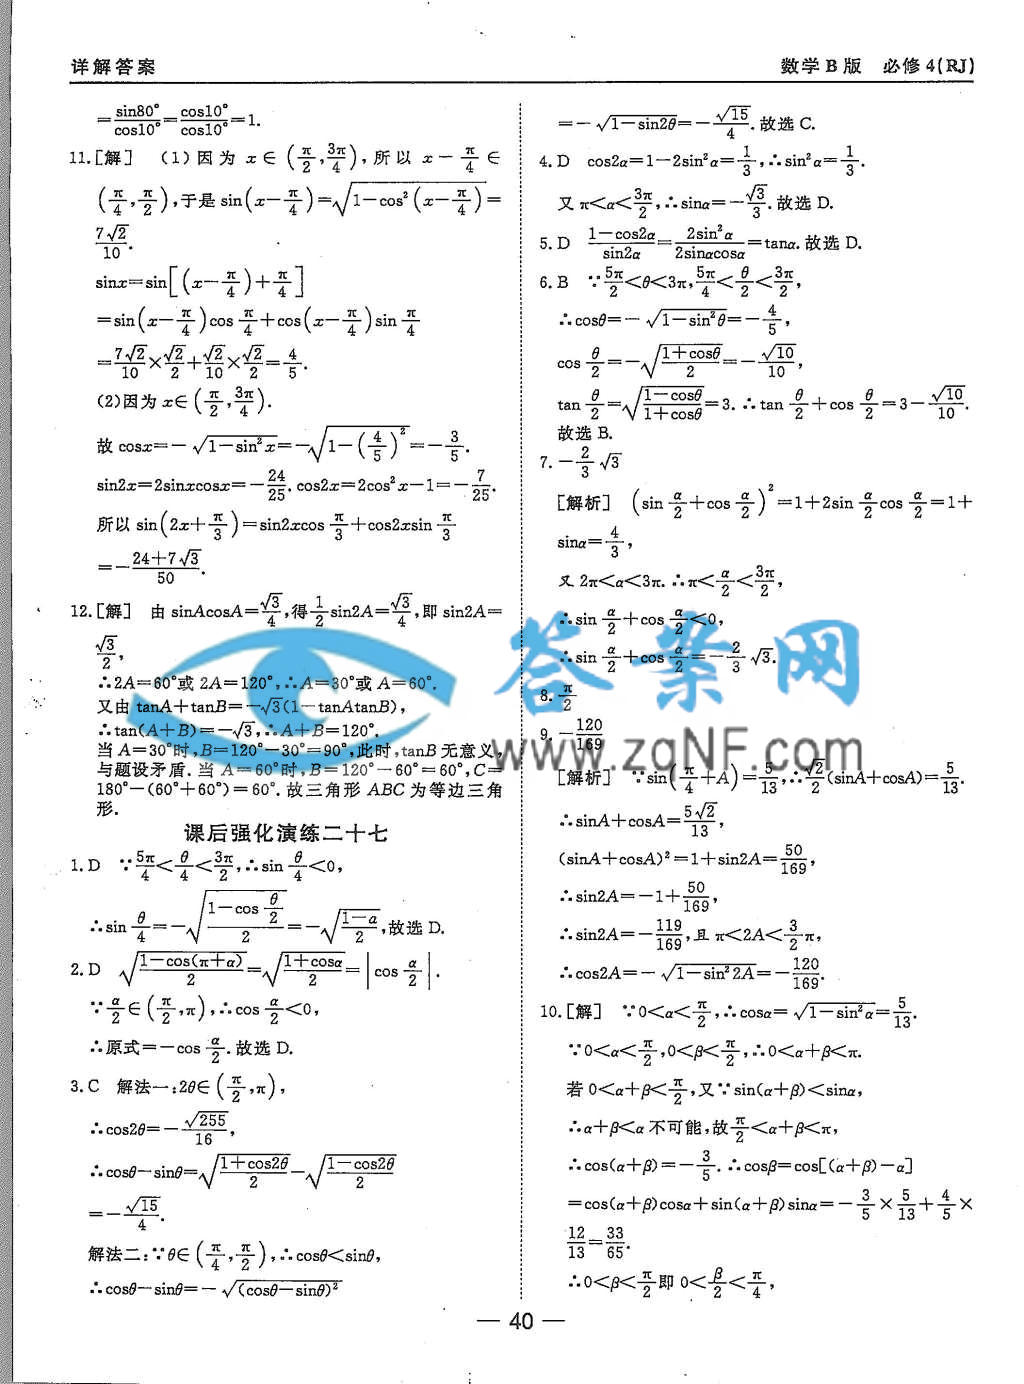 详解答案
数学B版 必修4(RJ)
=sin80°/cos10°=cos10°/cos10°=1.
11.[解] (1)因为 x∈(π/2,3π/4),所以 x-π/4∈
(π/4,π/2),于是 sin(x-π/4)=√(1-cos²(x-π/4))=
7√2/10.
sinx=sin[(x-π/4)+π/4]
=sin(x-π/4)cosπ/4+cos(x-π/4)sinπ/4
=7√2/10×√2/2+√2/10×√2/2=4/5.
(2)因为 x∈(π/2,3π/4).
故 cosx=-√(1-sin²x)=-√(1-(4/5)²)=-3/5.
sin2x=2sinxcosx=-24/25. cos2x=2cos²x-1=-7/25.
所以 sin(2x+π/3)=sin2xcosπ/3+cos2xsinπ/3
=-(24+7√3)/50.
12.[解] 由 sinAcosA=√3/4,得1/2sin2A=√3/4,即 sin2A=
√3/2,
∴2A=60°或 2A=120°,∴A=30°或 A=60°.
又由 tanA+tanB=-√3(1-tanAtanB),
∴tan(A+B)=-√3,∴A+B=120°.
当 A=30°时,B=120°-30°=90°,此时,tanB无意义,
与题设矛盾.当 A=60°时,B=120°-60°=60°,C=
180°-(60°+60°)=60°.故三角形 ABC 为等边三角
形.
课后强化演练二十七
1.D ∵5π/4<θ/4<3π/2,∴sinθ/4<0,
∴sinθ/4=-√((1-cosθ/2)/2)=-√((1-a)/2),故选 D.
2.D √((1-cos(π+α))/2)=√((1+cosα)/2)=|cosα/2|.
∵α/2∈(π/2,π),∴cosα/2<0,
∴原式=-cosα/2.故选 D.
3.C 解法一:2θ∈(π/2,π),
∴cos2θ=-√255/16,
∴cosθ-sinθ=√((1+cos2θ)/2)-√((1-cos2θ)/2)
=-√15/4.
解法二:∵θ∈(π/4,π/2),∴cosθ<sinθ,
∴cosθ-sinθ=-√(cosθ-sinθ)²
=-√(1-sin2θ)=-√15/4.故选 C.
4.D cos2α=1-2sin²α=1/3,∴sin²α=1/3.
又 π<α<3π/2,∴sinα=-√3/3.故选 D.
5.D (1-cos2α)/sin2α=2sin²α/2sinαcosα=tanα.故选 D.
6.B ∵5π/2<θ<3π,5π/4<θ/2<3π/2,
∴cosθ=-√(1-sin²θ)=-4/5,
cosθ/2=-√((1+cosθ)/2)=-√10/10,
tanθ/2=√((1-cosθ)/(1+cosθ))=3.∴tanθ/2+cosθ/2=3-√10/10.
故选 B.
7.-2/3√3
[解析] (sinα/2+cosα/2)²=1+2sinα/2cosα/2=1+
sinα=4/3,
又 2π<α<3π.∴π<α/2<3π/2,
∴sinα/2+cosα/2<0,
∴sinα/2+cosα/2=-2/3√3.
8.π/2
9.-120/169
[解析] ∵sin(π/4+A)=5/13,∴√2/2(sinA+cosA)=5/13.
∴sinA+cosA=5√2/13,
(sinA+cosA)²=1+sin2A=50/169,
∴sin2A=-1+50/169,
∴sin2A=-119/169,且 π<2A<3/2π,
∴cos2A=-√(1-sin²2A)=-120/169.
10.[解] ∵0<α<π/2,∴cosα=√(1-sin²α)=5/13.
∵0<α<π/2,0<β<π/2,∴0<α+β<π.
若 0<α+β<π/2,又∵sin(α+β)<sinα,
∴α+β<α 不可能,故π/2<α+β<π,
∴cos(α+β)=-3/5.∴cosβ=cos[(α+β)-α]
=cos(α+β)cosα+sin(α+β)sinα=-3/5×5/13+4/5×
12/13=33/65.
∴0<β<π/2即 0<β/2<π/4,
答案网
www.zqNF.com
— 40 —